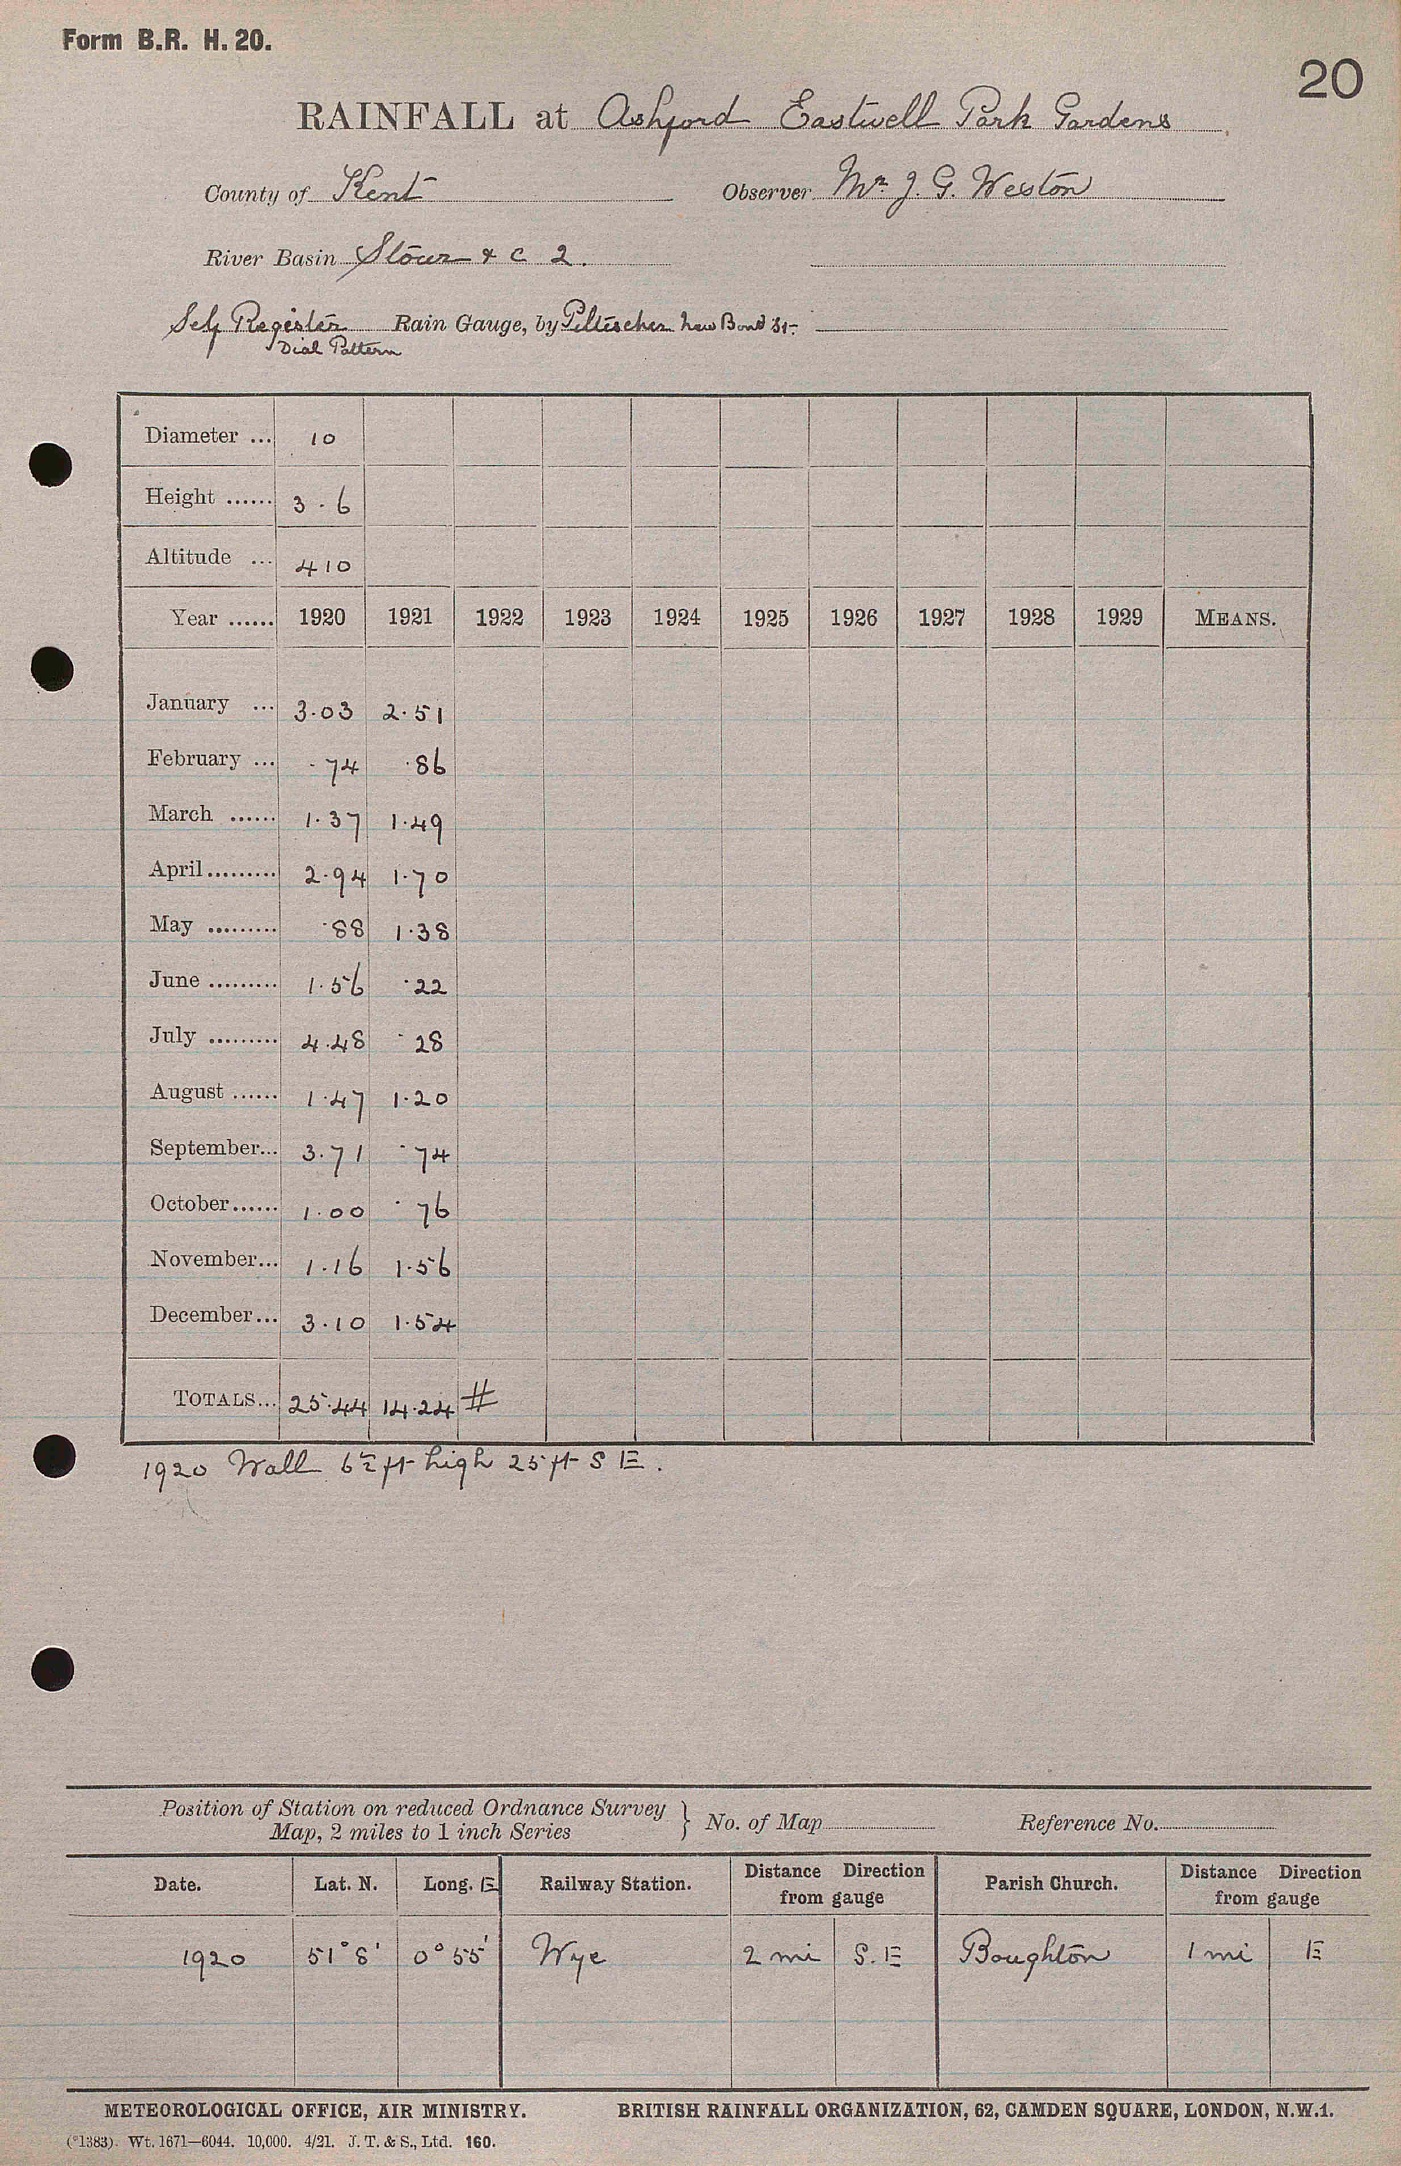 Form B.R. H. 20.
20
RAINFALL at Ashford Eastwell Park Gardens
County of Kent Observer Mr. J. G. Weston
River Basin Stour & C 2.
Self Register Rain Gauge, by Pillischer New Bond St.
Dial Pattern
Diameter ... 10
Height ...... 3 . 6
Altitude ... 410
Year ...... 1920 1921 1922 1923 1924 1925 1926 1927 1928 1929 MEANS.
January ... 3.03 2.51
February ... .74 .86
March ...... 1.37 1.49
April ......... 2.94 1.70
May ......... .88 1.38
June ......... 1.56 .22
July ......... 4.48 .28
August ...... 1.47 1.20
September... 3.71 .74
October...... 1.00 .76
November... 1.16 1.56
December... 3.10 1.54
TOTALS... 25.44 14.24 #
1920 Wall 6½ ft high 25 ft S E.
Position of Station on reduced Ordnance Survey
Map, 2 miles to 1 inch Series } No. of Map Reference No.
Date. Lat. N. Long. E Railway Station. Distance Direction from gauge Parish Church. Distance Direction from gauge
1920 51° 8' 0° 55' Wye 2 mi S. E Boughton 1 mi E
METEOROLOGICAL OFFICE, AIR MINISTRY. BRITISH RAINFALL ORGANIZATION, 62, CAMDEN SQUARE, LONDON, N.W.1.
(*1383). Wt. 1671—6044. 10,000. 4/21. J. T. & S., Ltd. 160.